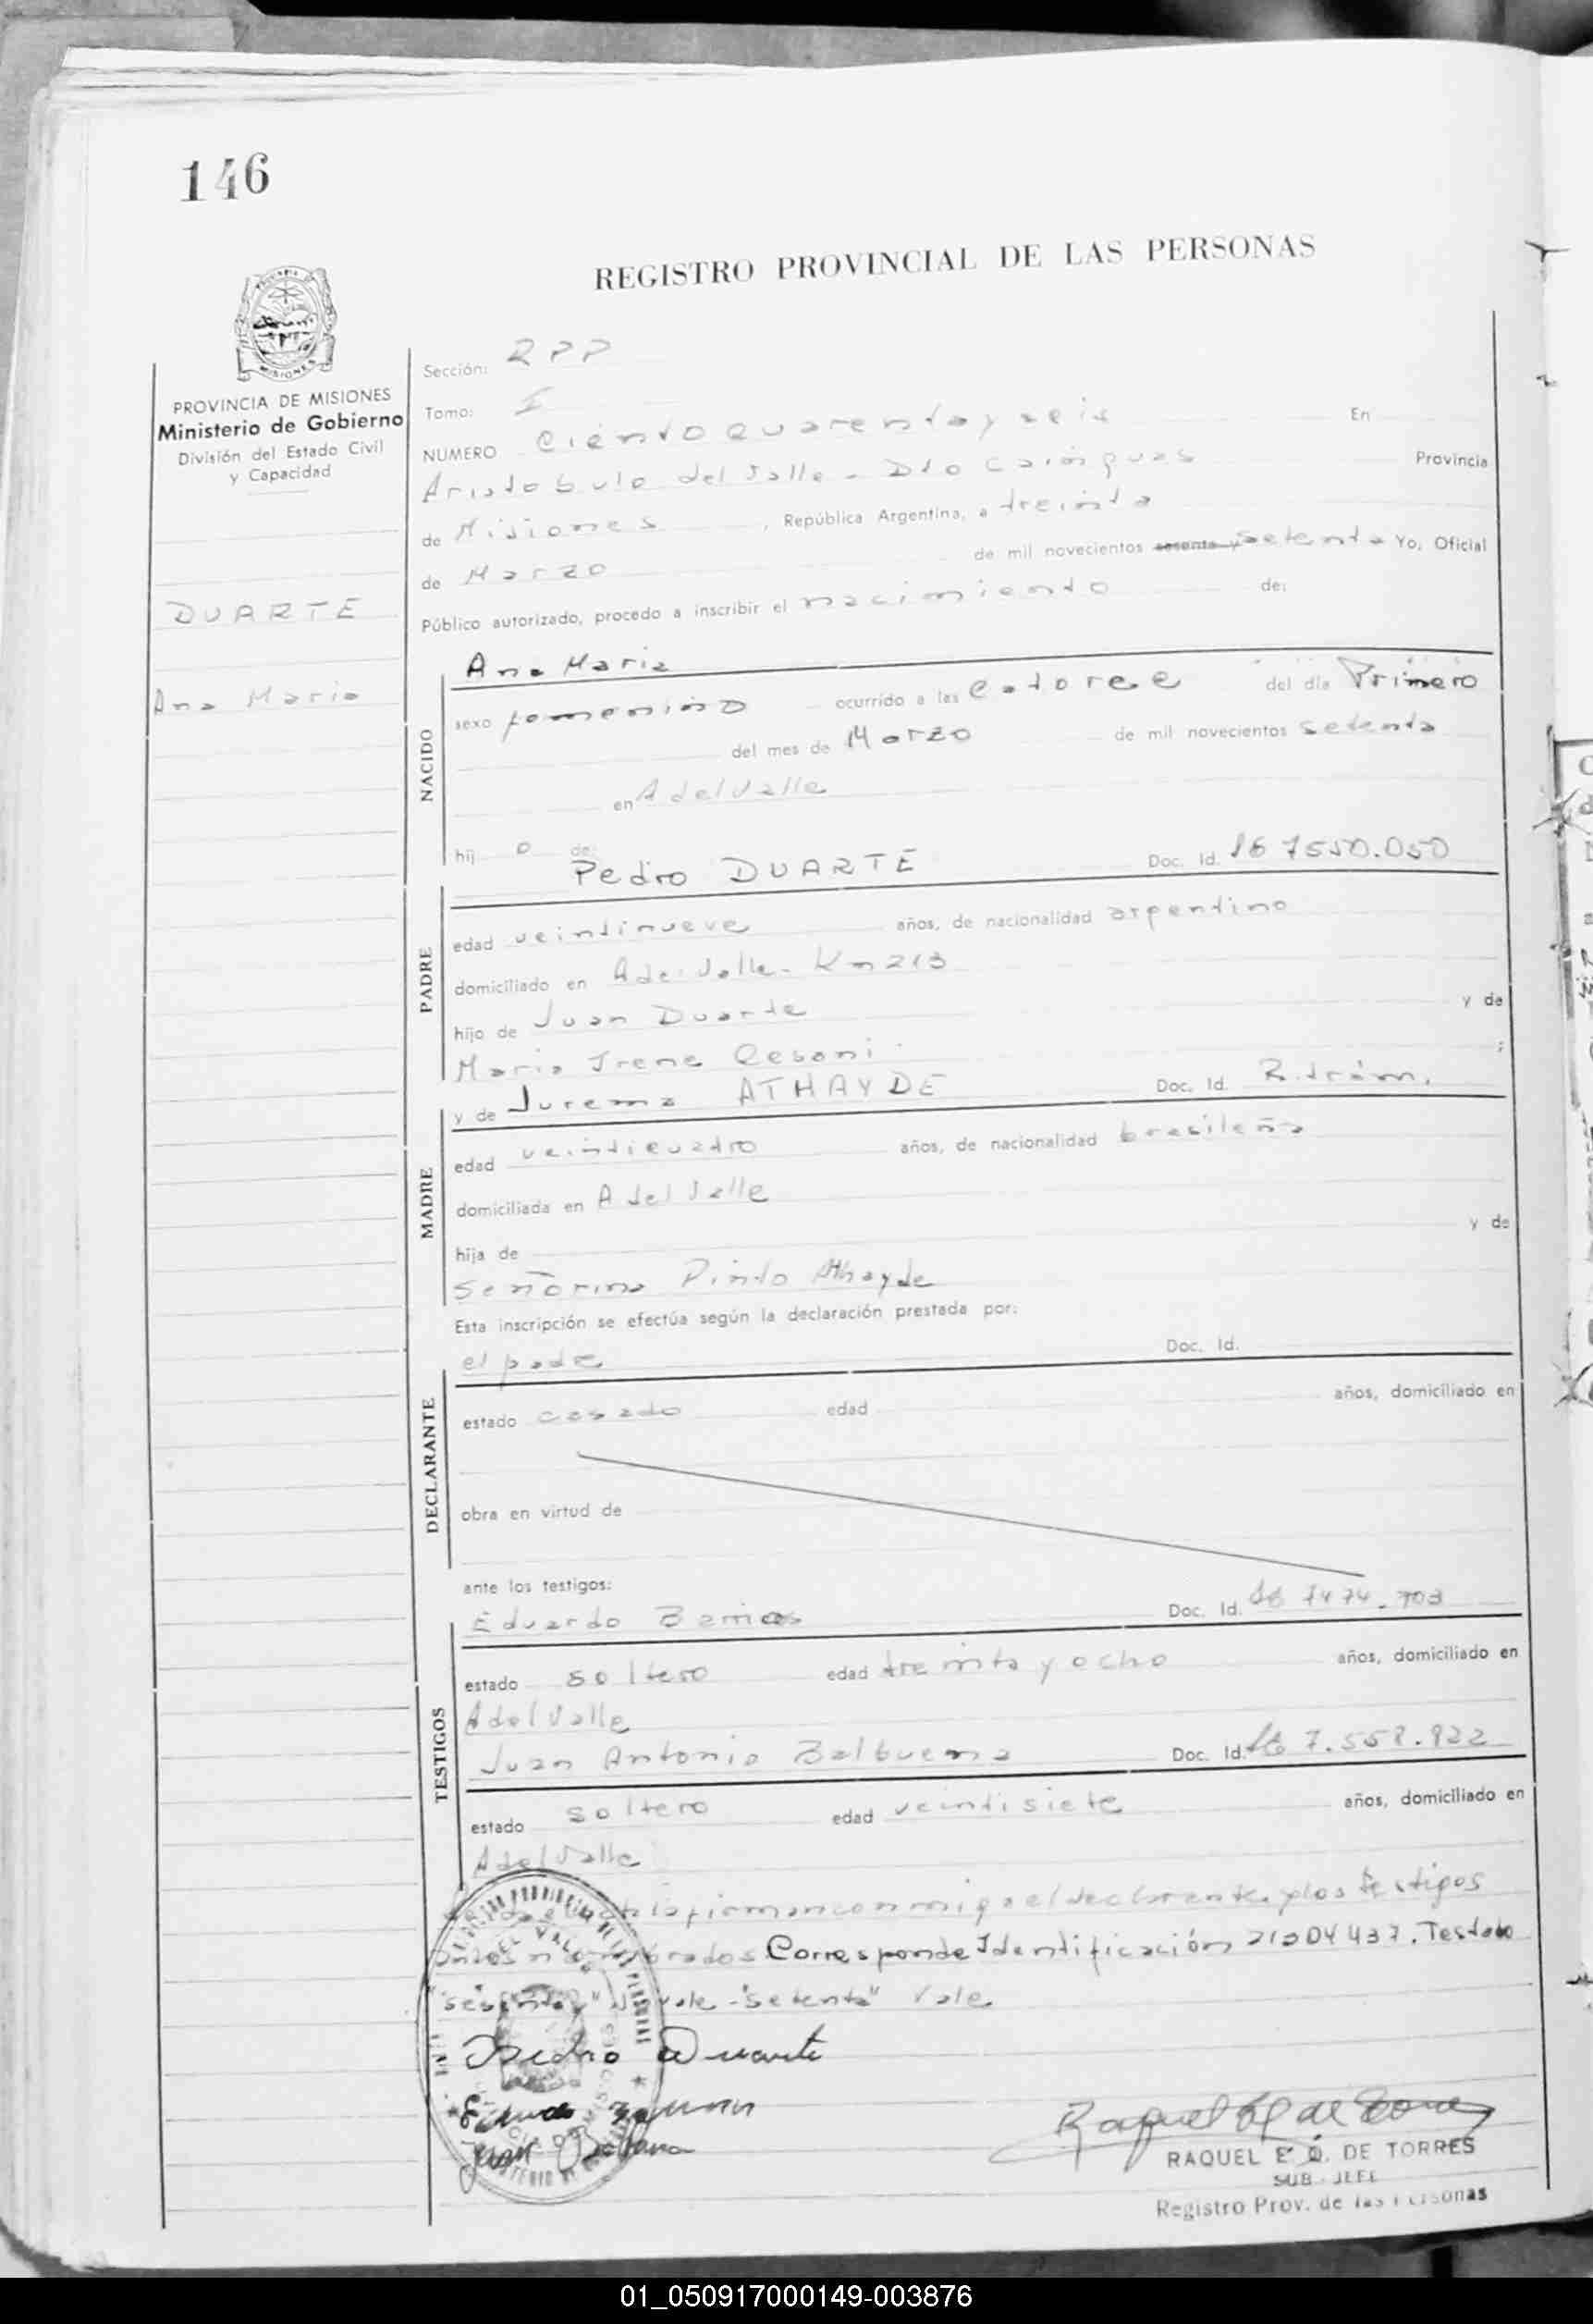 146
REGISTRO PROVINCIAL DE LAS PERSONAS
MISIONES
PROVINCIA DE MISIONES
Ministerio de Gobierno
División del Estado Civil
y Capacidad
DUARTE
Ana Maria
Sección: RPP
Tomo: I
NUMERO Ciento cuarenta y seis En
Aristobulo del Valle - Dto Cainguas Provincia
de Misiones, República Argentina, a treinta
de Marzo de mil novecientos sesenta y setenta Yo, Oficial
Público autorizado, procedo a inscribir el nacimiento de:
NACIDO
Ana Maria
sexo femenino ocurrido a las Catorce del día Primero
del mes de Marzo de mil novecientos setenta
en A del Valle
hij o de
Pedro DUARTE Doc. Id. 7550.050
PADRE
edad veintinueve años, de nacionalidad argentino
domiciliado en A del Valle - Km 213
hijo de Juan Duarte y de
Maria Irene Cesani ;
y de Jurema ATHAYDE Doc. Id. R. trám.
MADRE
edad veinticuatro años, de nacionalidad brasileña
domiciliada en A del Valle
hija de y de
Señorina Pinto Athayde
Esta inscripción se efectúa según la declaración prestada por:
el padre Doc. Id.
DECLARANTE
estado casado edad años, domiciliado en
obra en virtud de
ante los testigos:
Eduardo Doc. Id. 7474.703
TESTIGOS
estado soltero edad treinta y ocho años, domiciliado en
A del Valle
Juan Antonio Balbuena Doc. Id. 7.558.822
estado soltero edad veintisiete años, domiciliado en
A del Valle
la firman conmigo el declarante y los testigos
antes nombrados Corresponde Identificación 21204437. Testado
"sesenta y" No vale - "setenta" Vale
Pedro Duarte
RAQUEL E. DE TORRES
SUB - JEFE
Registro Prov. de las Personas
01_050917000149-003876